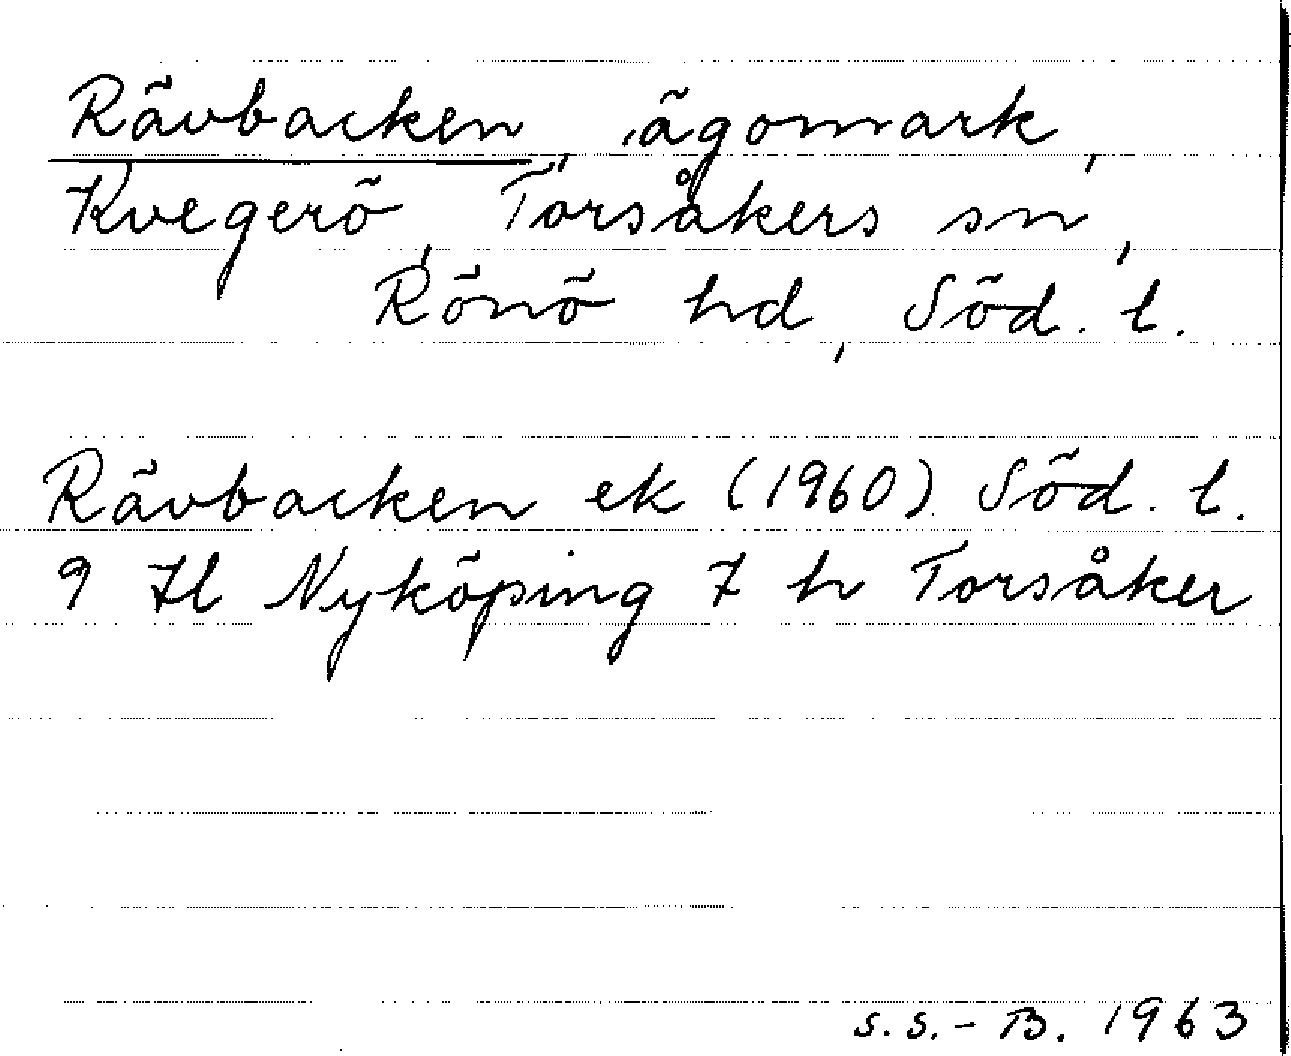 Rävbacken, ägomark,
Kvegerö, Torsåkers sn,
Rönö hd, Söd. l.
Rävbacken ek (1960). Söd. l.
9 H Nyköping 7 h Torsåker
s.s.-B. 1963